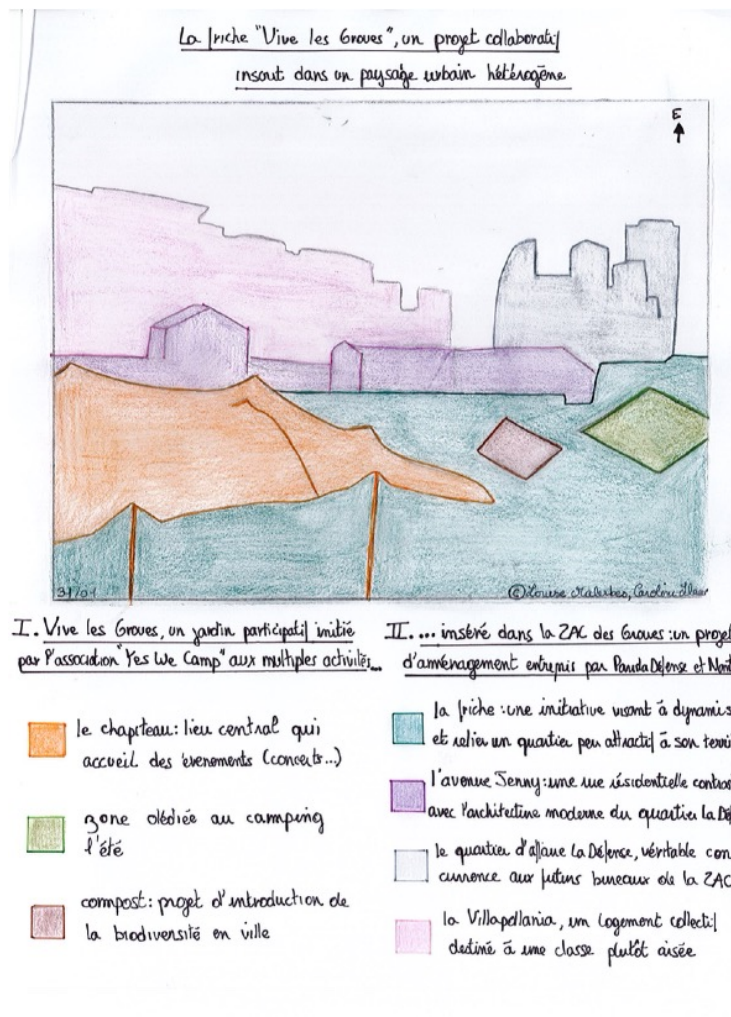 La friche "Vive les Groues", un projet collaboratif
inscrit dans un paysage urbain hétérogène
E
31/01
© Louise Malerbes, Caroline
I. Vive les Groues, un jardin participatif initié
par l'association "Yes We Camp" aux multiples activités...
le chapiteau: lieu central qui
accueil des évenements (concerts...)
zone dédiée au camping
l'été
compost: projet d'introduction de
la biodiversité en ville
II. ... inséré dans la ZAC des Groues: un projet
d'aménagement entrepris par Paris La Défense et
la friche: une initiative visant à
et relier un quartier peu attractif à son
l'avenue Jenny: une rue résidentielle
avec l'architecture moderne du quartier La
le quartier d'affaire La Défense, véritable con
currence aux futurs bureaux de la ZAC
la Villapollonia, un logement collectif
destiné à une classe plutôt aisée